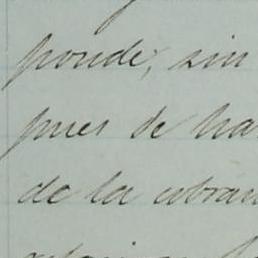 ponde, sin
pues de ha
de la cobran